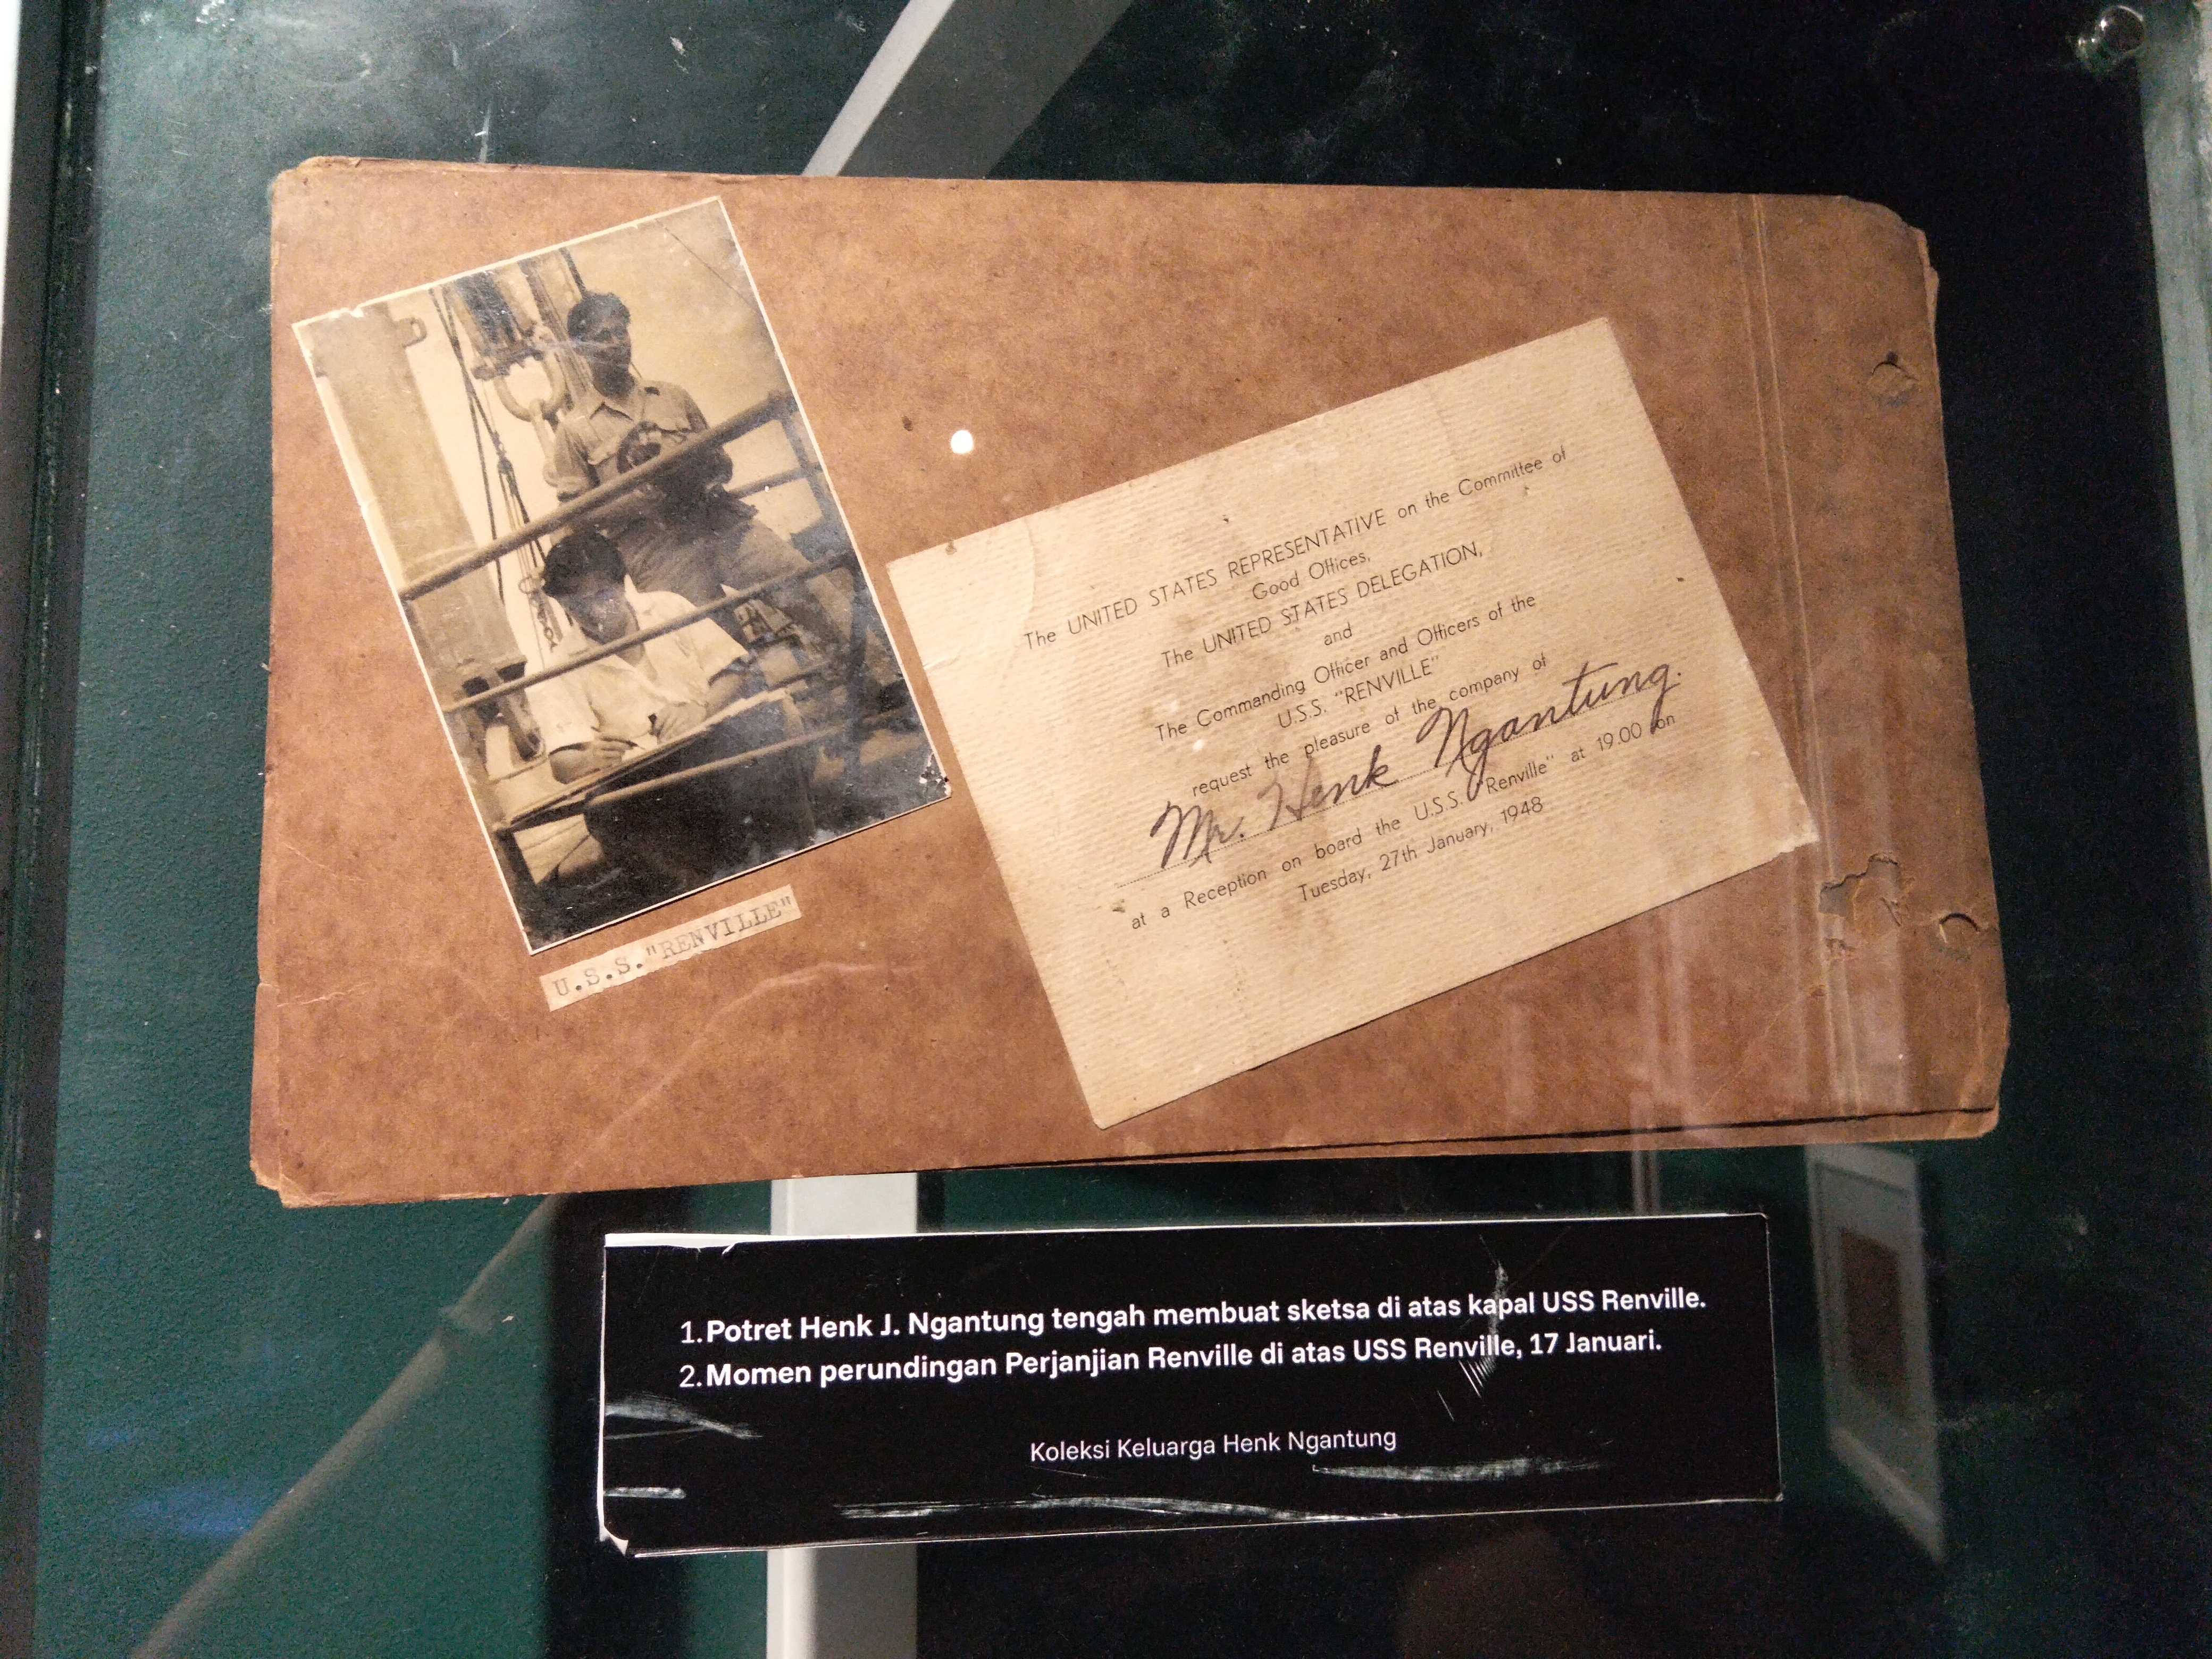 U.S.S."RENVILLE"
The UNITED STATES REPRESENTATIVE on the Committee of
Good Offices,
The UNITED STATES DELEGATION,
and
The Commanding Officer and Officers of the
U.S.S. "RENVILLE"
request the pleasure of the company of
Mr. Henk Ngantung.
at a Reception on board the U.S.S. "Renville" at 19.00 on
Tuesday, 27th January, 1948
1. Potret Henk J. Ngantung tengah membuat sketsa di atas kapal USS Renville.
2. Momen perundingan Perjanjian Renville di atas USS Renville, 17 Januari.
Koleksi Keluarga Henk Ngantung